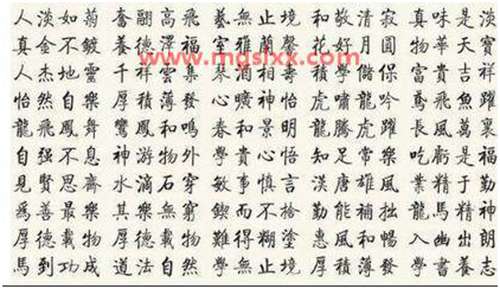 人淡如菊 奮翮高飛 藝無止境 和敬清寂 真味是淡
真金不鍍 養德澤福 室雅蘭馨 花好月圓 物華天寶
人杰地靈 千祥雲集 琴 相 積學儲 富貴吉祥
www.mgslxx.com
怡然自樂 厚積薄發 心曠神怡 虎嘯龍吟 鳶飛魚躍
龍飛鳳舞 鸞鳳和鳴 春和景明 龍騰虎躍 長風萬裏
自强不息 神游物外 學貴心悟 知足常樂 吃虧是福
見賢思齋 水滴石穿 敏事慎言 漢唐雄風 業精于勤
爲善最樂 其樂無窮 鍥而不捨 勤能補拙 龍馬精神
厚德載物 厚德載物 難得糊塗 惠風和暢 幽出朗
馬到功成 道法自然 學無止境 厚積薄發 學書養志